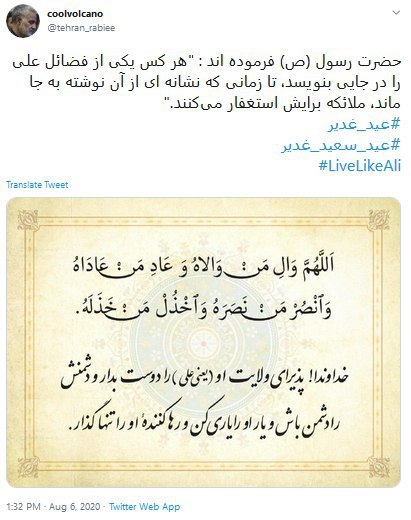 coolvolcano
@tehran_rabiee
حضرت رسول (ص) فرموده اند : "هر کس یکی از فضائل علی
را در جایی بنویسد، تا زمانی که نشانه ای از آن نوشته به جا
ماند، ملائکه برایش استغفار می‌کنند."
#عید_غدیر
#عید_سعید_غدیر
#LiveLikeAli
Translate Tweet
اَللَّهُمَّ وَالِ مَنْ وَالاهُ وَ عَادِ مَنْ عَادَاهُ
وَٱنْصُرْ مَنْ نَصَرَهُ وَٱخْذُلْ مَنْ خَذَلَهُ.
خداوندا! پذیرای ولایت او (یعنی علی) را دوست بدار و دشمنش
را دشمن باش و یار او را یاری کن و رها کنندهٔ او را تنها گذار.
1:32 PM · Aug 6, 2020 · Twitter Web App